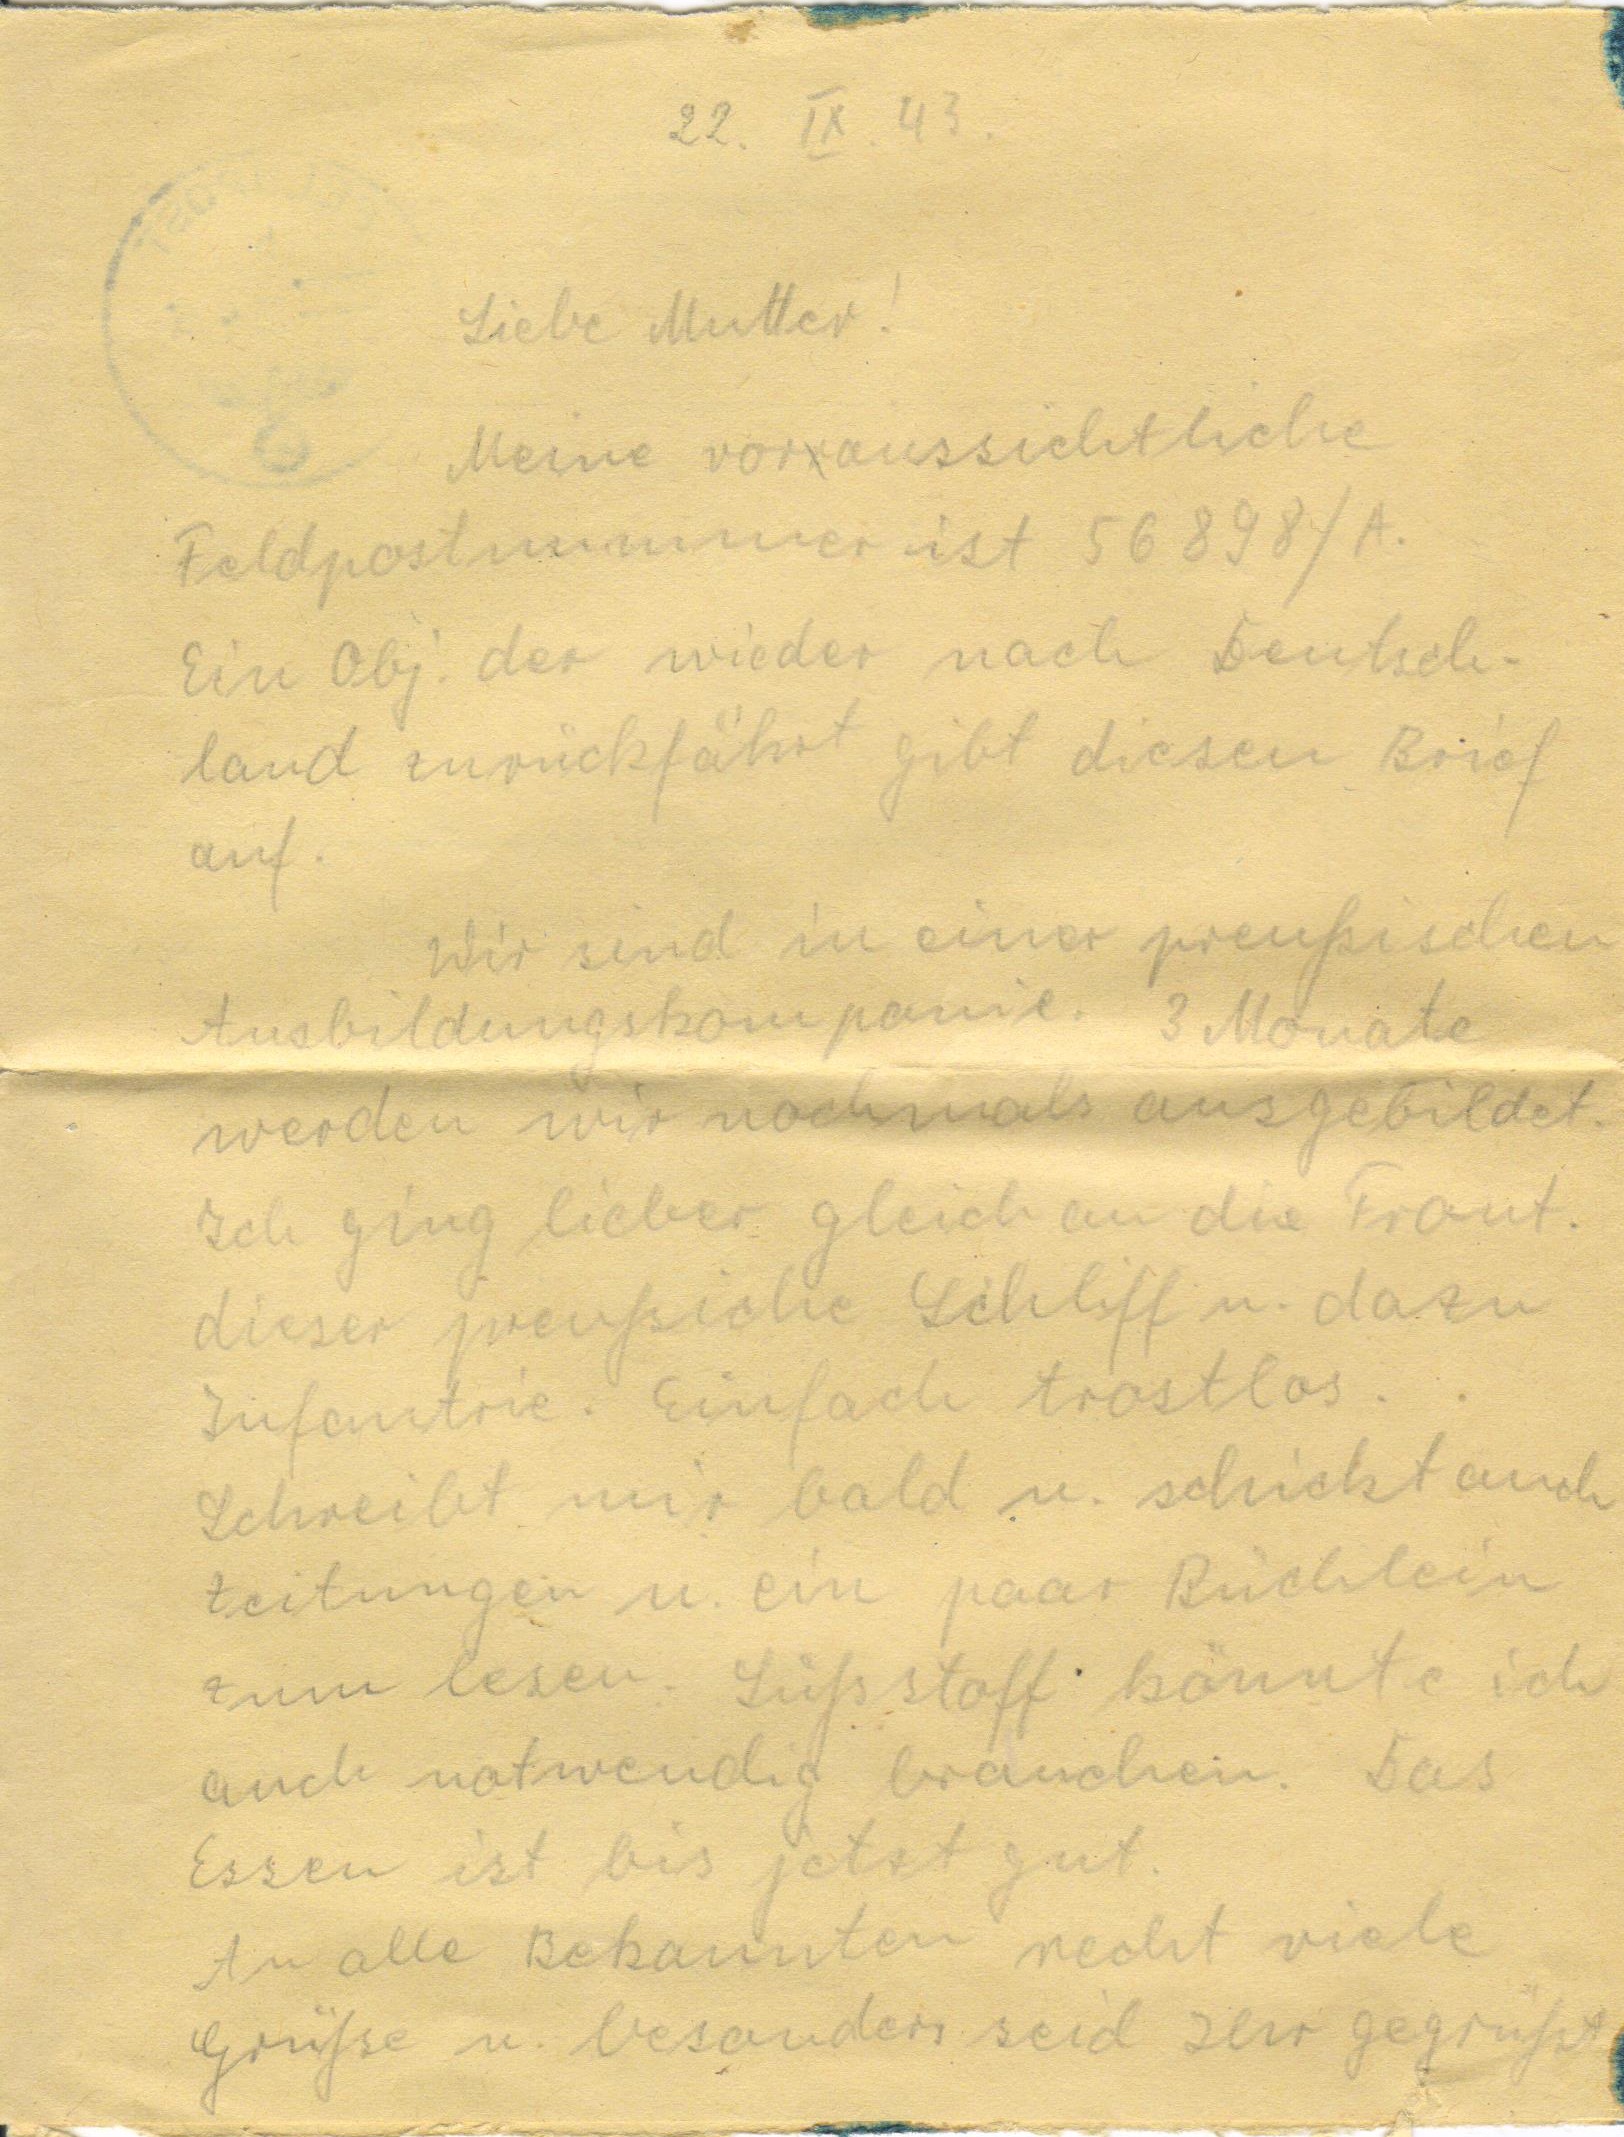 22. IX. 43.
Liebe Mutter!
Meine voraussichtliche
Feldpostnummer ist 56898/A.
Ein Obj. der wieder nach Deutsch-
land zurückfährt gibt diesen Brief
auf.
Wir sind in einer preußischen
Ausbildungskompanie. 3 Monate
werden wir nochmals ausgebildet.
Ich ging lieber gleich an die Front.
dieser preußiche Schliff u. dazu
Infantrie. Einfach trostlos.
Schreibt mir bald u. schickt auch
Zeitungen u. ein paar Büchlein
zum lesen. Süßstoff könnte ich
auch notwendig brauchen. Das
Essen ist bis jetzt gut.
An alle Bekannten recht viele
Grüße u. besonders seid Ihr gegrüßt